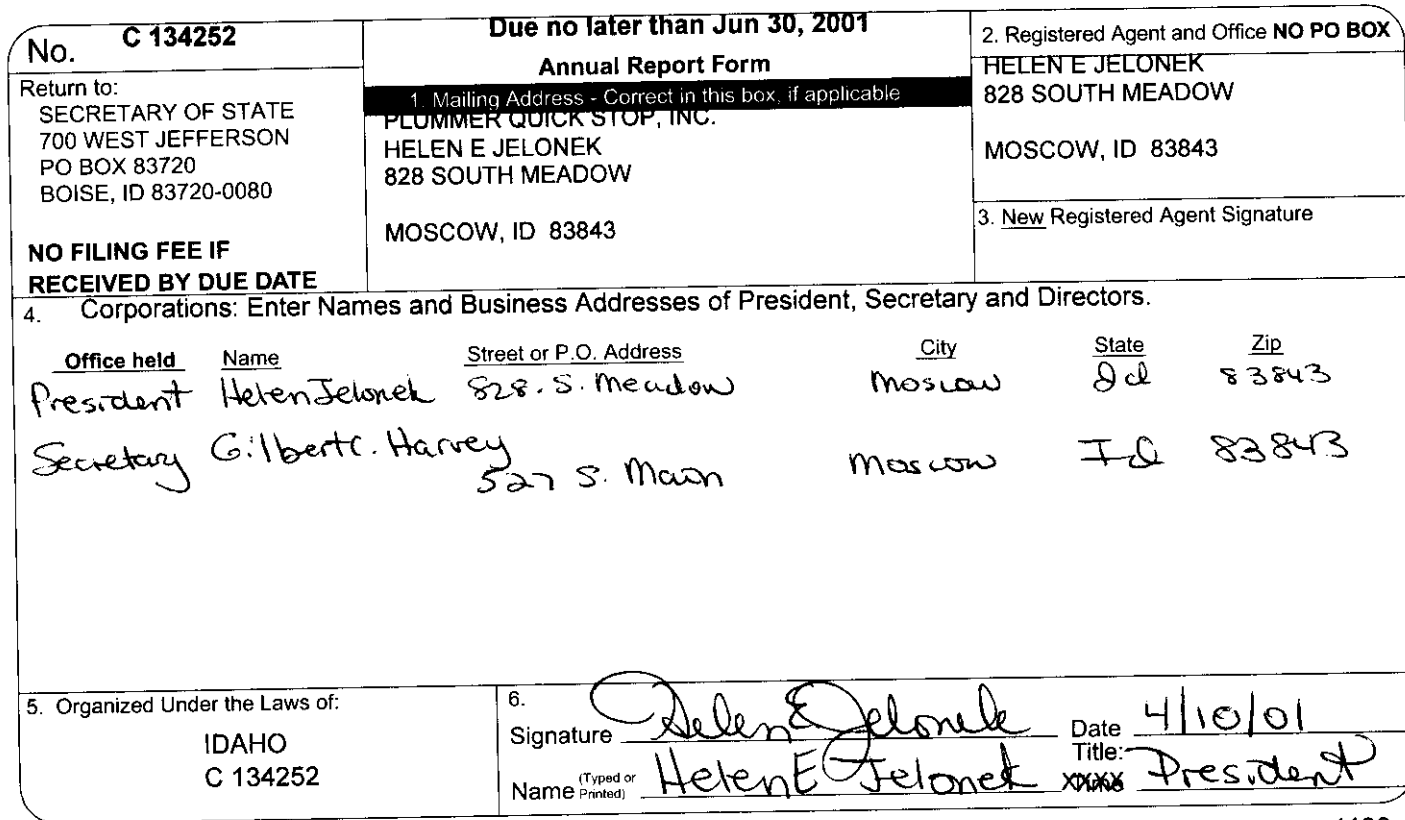 No. C 134252
Return to:
SECRETARY OF STATE
700 WEST JEFFERSON
PO BOX 83720
BOISE, ID 83720-0080
NO FILING FEE IF
RECEIVED BY DUE DATE
Due no later than Jun 30, 2001
Annual Report Form
1. Mailing Address - Correct in this box, if applicable
PLUMMER QUICK STOP, INC.
HELEN E JELONEK
828 SOUTH MEADOW
MOSCOW, ID 83843
2. Registered Agent and Office NO PO BOX
HELEN E JELONEK
828 SOUTH MEADOW
MOSCOW, ID 83843
3. New Registered Agent Signature
4. Corporations: Enter Names and Business Addresses of President, Secretary and Directors.
Office held Name Street or P.O. Address City State Zip
President Helen Jelonek 828. S. Meadow Moscow Id 83843
Secretary Gilbert C. Harvey 527 S. Main Moscow Id 83843
5. Organized Under the Laws of:
IDAHO
C 134252
6.
Signature Helen E Jelonek Date 4/10/01
Name (Typed or Printed) Helen E Jelonek Title: President